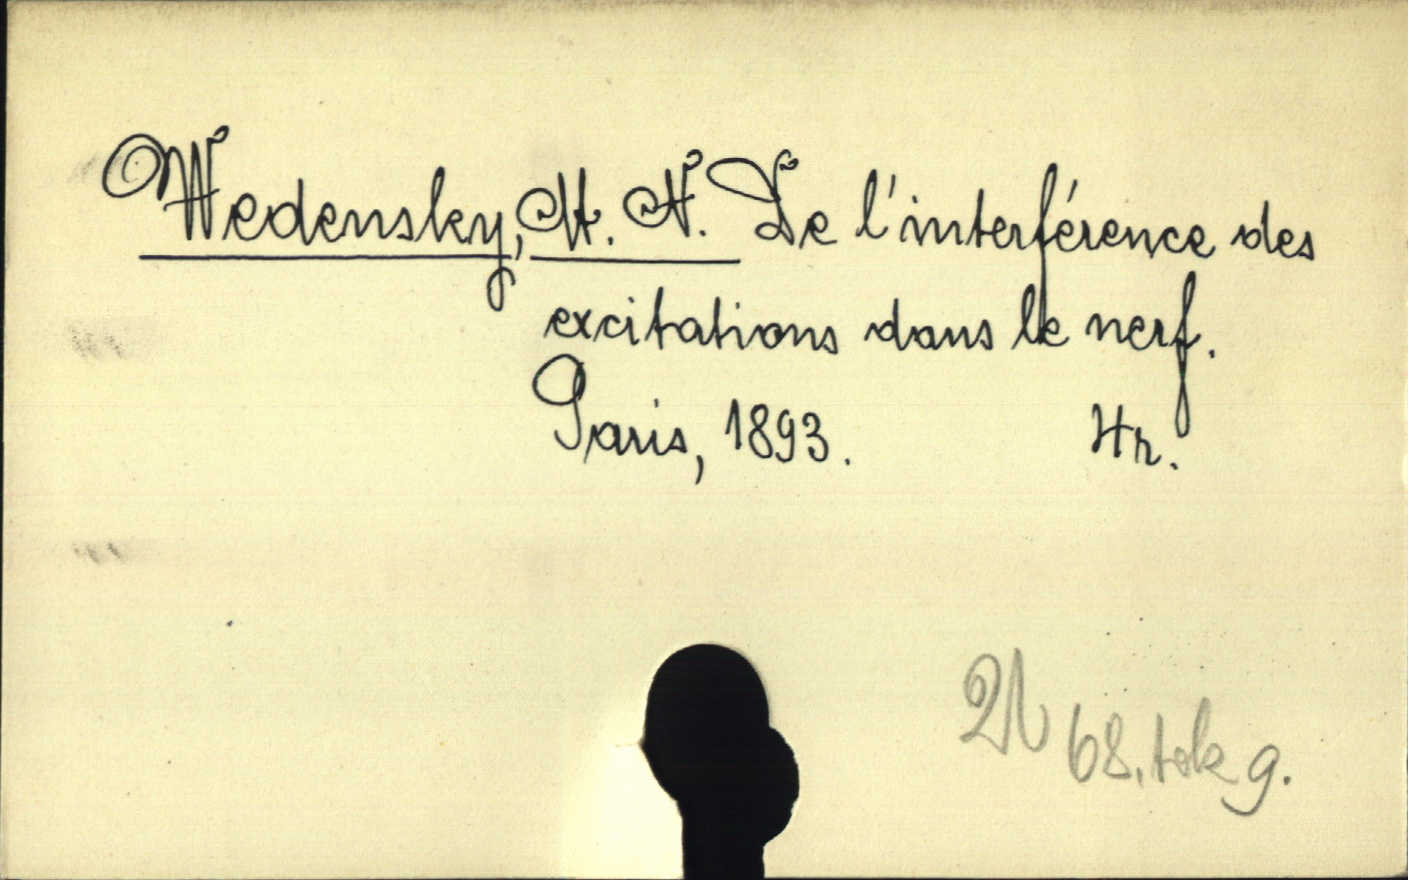 Wedensky, M. N. De l'interférence des
excitations dans le nerf.
Paris, 1893. Hr.
68. tok g.